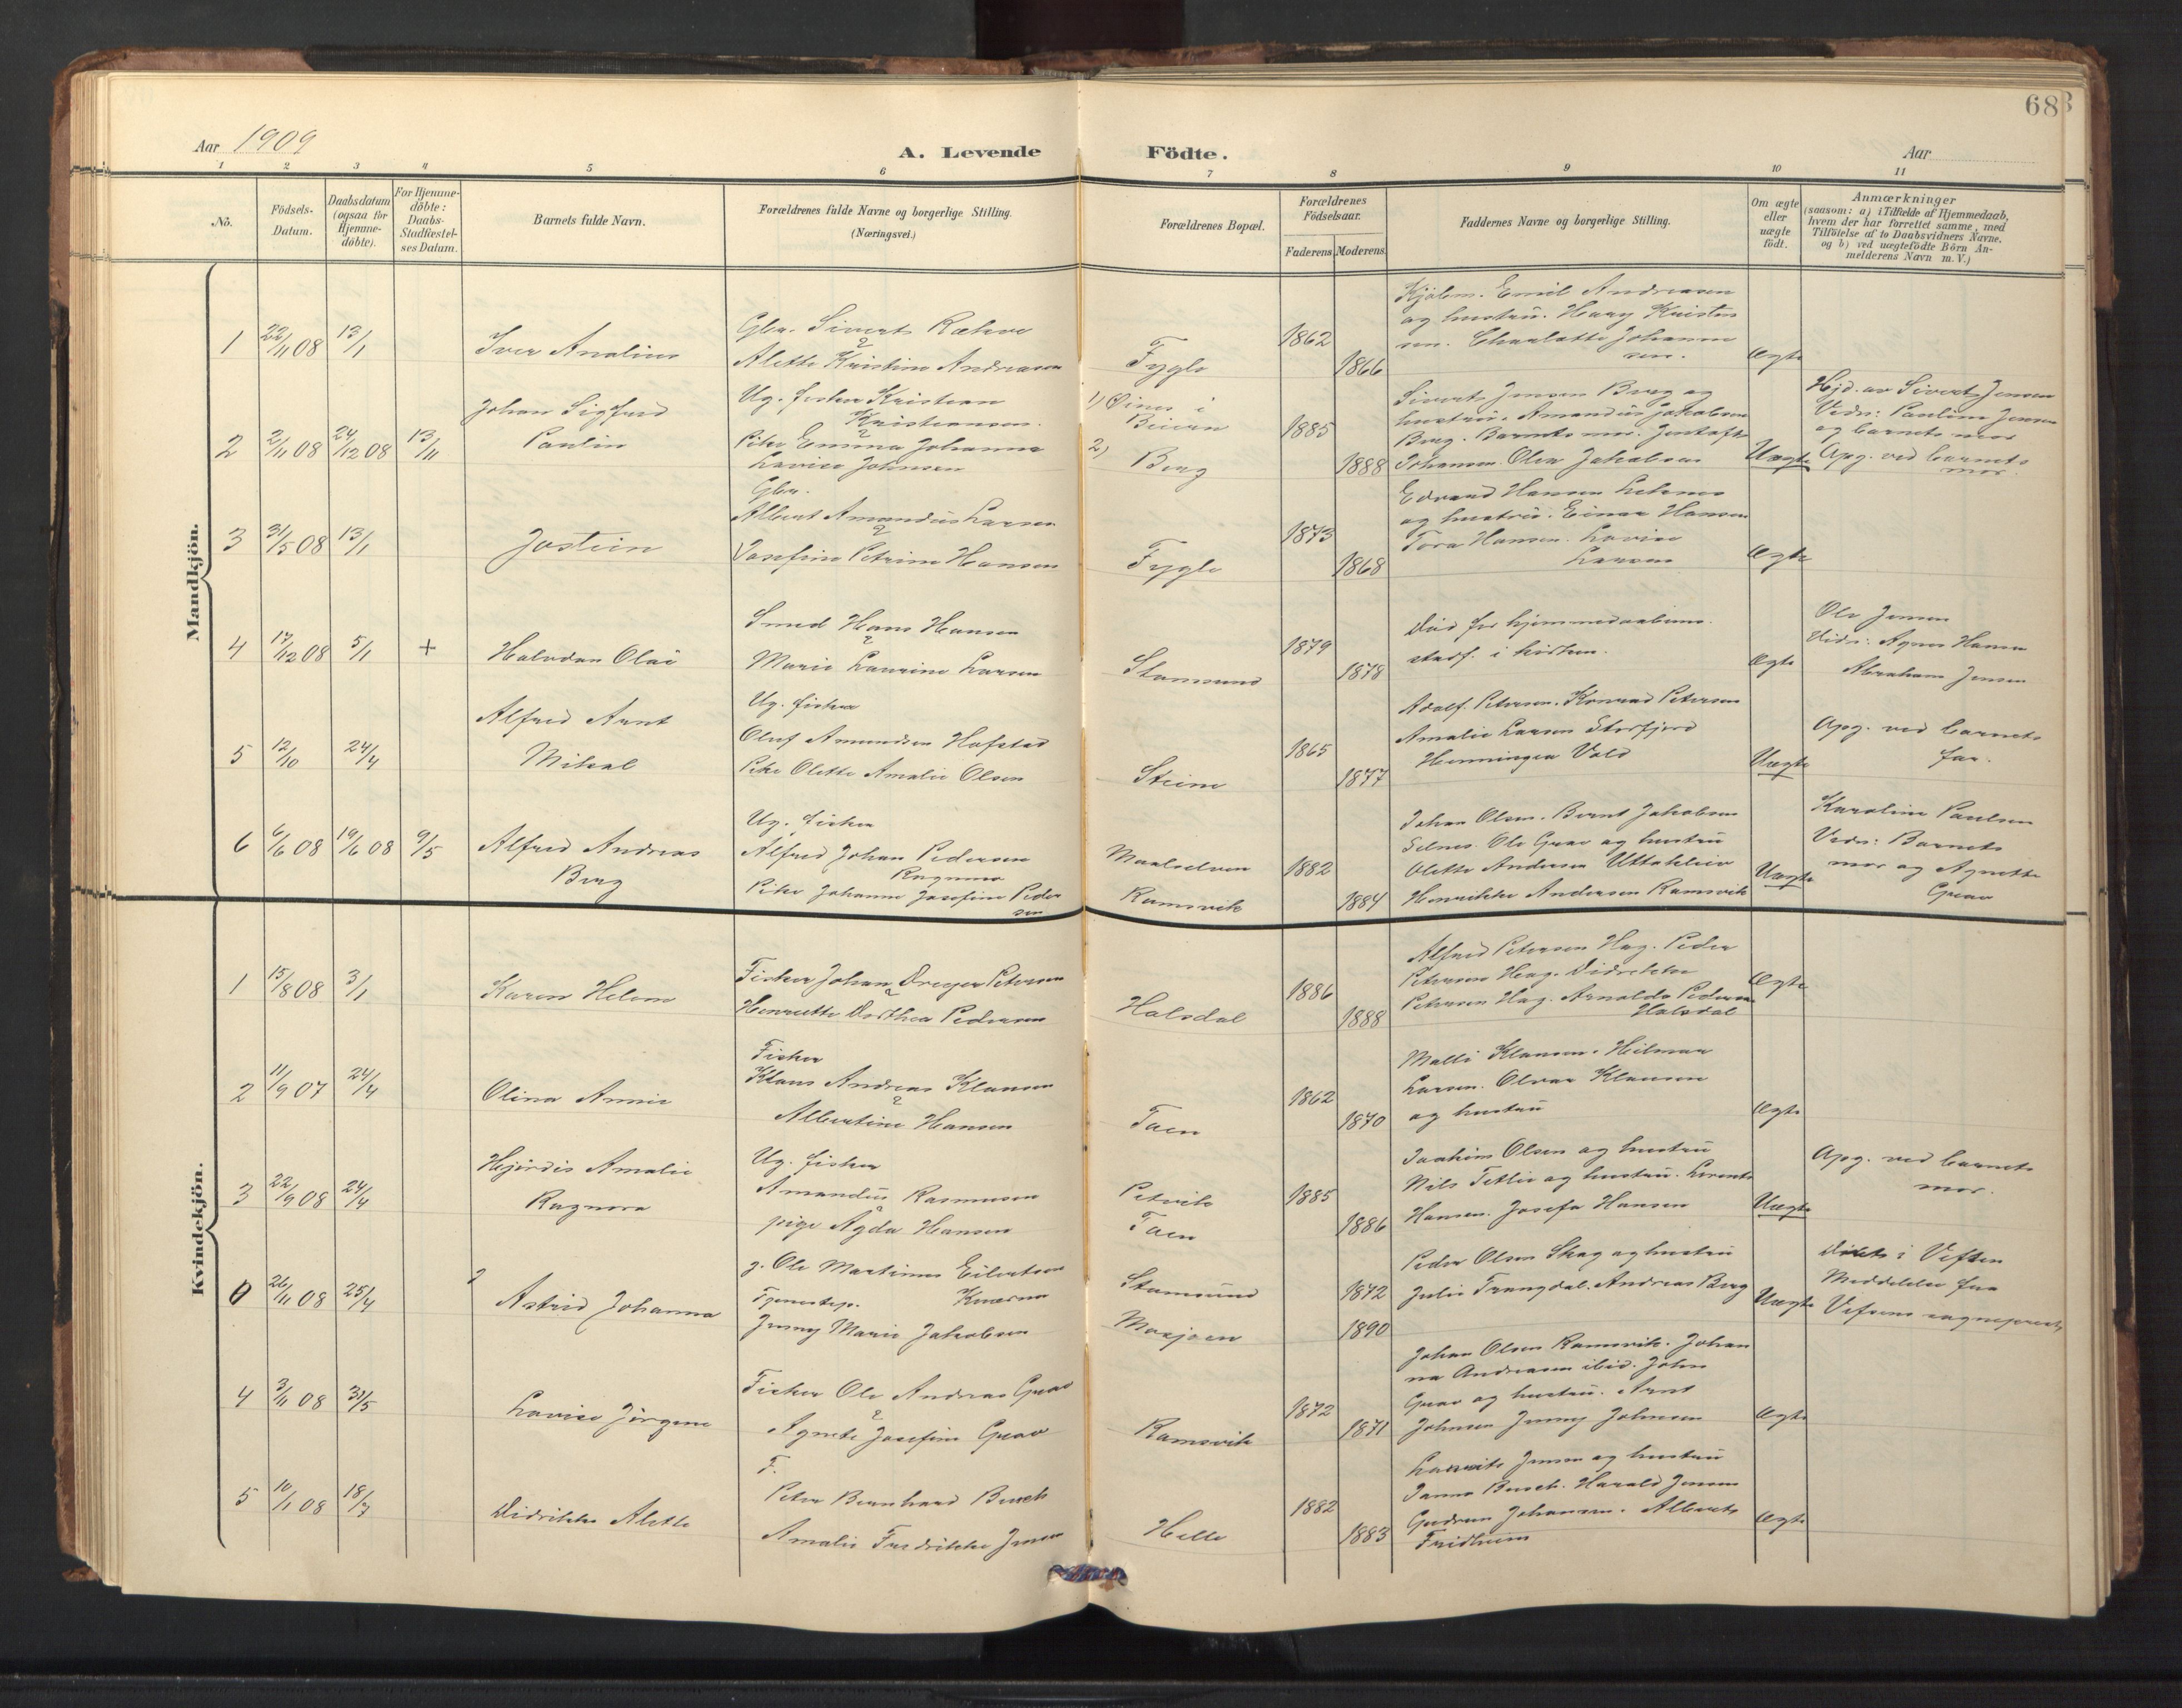 68
Aar 1909
A. Levende Födte.
Aar
1 2 3 4 5 6 7 8 9 10 11
No.
Födsels-
Datum.
Daabsdatum
(ogsaa for
Hjemme-
döbte).
For Hjemme-
döbte:
Daabs-
Stadfæstel-
ses Datum.
Barnets fulde Navn.
Forældrenes fulde Navne og borgerlige Stilling.
(Næringsvei.)
Forældrenes Bopæl.
Forældrenes
Födselsaar.
Faderens Moderens
Faddernes Navne og borgerlige Stilling.
Om ægte
eller
uægte
födt.
Anmærkninger
(saasom: a) i Tilfælde af Hjemmedaab,
hvem der har forrettet samme, med
Tilföielse af to Daabsvidners Navne,
og b) ved uægtefödte Börn An-
melderens Navn m. V.)
Mandkjön.
1 22/11 08 13/1
Iver Analius
Gbr. Sivert
Alette Kristine Andreasen
Fygle
1862
1866
Emil Andreasen
og hustru. Haag Kristen
sen. Charlotte Johanne
sen.
Ægte
2 2/11 08 24/12 08 13/11
Johan Sigfred
Paulin
Ug. fisker Kristian
Kristiansen.
Pike Emma Johanna
Lovise Johnsen
1)
Beiarn
2)
Berg
1885
1888
Sivert Jensen Berg og
hustru. Amandus Jakobsen
Berg. Barnets mor. Gustafh
Johansen. Olea Jakobsen
Uægte
Hjd. av Sivert Jensen
Vidn: Pauline Jensen
og barnets mor
Opg. ved barnets
mor.
3 31/5 08 13/1
Jostein
Gbr.
Albert Amandus Larsen
Josefine Petrine Hansen
Fygle
1873
1868
Edvard Hansen
og hustru. Einar Hansen
Tora Hansen. Lovise
Larsen
Ægte
4 17/12 08 5/1 +
Halvdan Olai
Smed Hans Hansen
Marie Laurine Larsen
Stamsund
1879
1878
Död før hjemmedaabens
stadf. i kirken.
Ægte
Ole Jensen
Vidn: Agnes Hansen
Abraham Jensen
5 12/10 24/4
Alfred Arnt
Mikal
Ug. fisker
Oluf Amundsen Hofstad
Pike Olette Amalie Olsen
Steine
1865
1877
Adolf Petersen. Konrad Petersen
Amalie Larsen Storfjord
Henningea Vold
Uægte
Opg. ved barnets
far.
6 6/6 08 19/6 08 9/5
Alfred Andreas
Berg
Ug. fisker
Alfred Johan Pedersen
Pike Johanne Josefine Peder
sen
Maalselven
Ramsvik
1882
1884
Johan Olsen. Bernt Jakobsen
Ole Grav og hustru
Olette Andersen
Henrikke Andersen Ramsvik
Uægte
Karoline Paulsen
Vidn: Barnets
mor og Agnethe
Grav
Kvindekjön.
1 15/8 08 3/1
Karen Helene
Fisker Johan Dreyer Petersen
Henriette Dorthea Pedersen
Halsdal
1886
1888
Alfred Petersen Hag. Peder
Petersen Hag. Didrikke
Petersen Hag. Arnolda Pedersen
Halsdal
Ægte
2 11/9 07 24/4
Olina Annie
Fisker
Klaus Andreas Klausen
Albertine Hansen
Taen
1862
1870
Malli Klausen. Hilmar
Larsen. Olvar Klausen
og hustru
Ægte
3 22/9 08 24/4
Hjördis Amalie
Ragnora
Ug. fisker
Amandus Rasmussen
pige Agda Hansen
Petvik
Taen
1885
1886
Joakim Olsen og hustru
Nils Tetlie og hustru. Lorents
Hansen. Josefa Hansen
Uægte
Opg. ved barnets
mor.
0 26/11 08 25/4
Astrid Johanna
g. Ole Martinus Eilertsen
Tjenestep.
Jenny Marie Jakobsen
Stamsund
Mosjöen
1872
1890
Peder Olsen Skag og hustru
Julie Trangdal. Andreas Berg
Uægte
Döbt i Vefsen
Meddelelse fra
Vefsens sogneprest
4 3/11 08 31/5
Lovise Jörgine
Fisker Ole Andreas Grav
Agnete Josefine Grav
Ramsvik
1872
1871
Johan Olsen Ramsvik. Johan
na Andreasen ibid. John
Grav og hustru. Arnt
Johnsen Jenny Johnsen
Ægte
5 10/1 08 18/7
Didrikke Alette
F.
Peter Bernhard Busch
Amalie Fredrikke Jensen
Helle
1882
1883
Jensen og hustru
Janna Busch. Harald Jensen
Gudrun Johansen. Alberts
Fridheim
Ægte